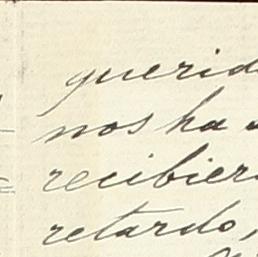 querid
nos ha
recibier
retardo,